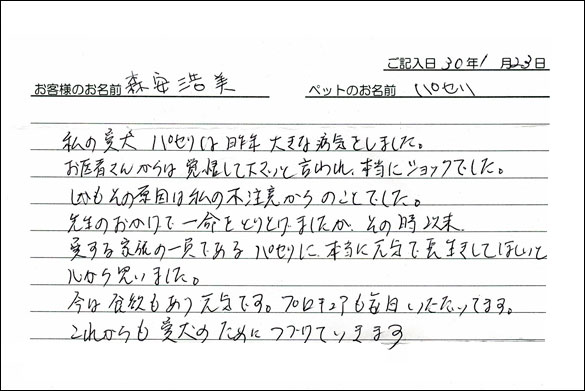 ご記入日 30年1月23日
お客様のお名前 森安 浩美 ペットのお名前 パセリ
私の愛犬 パセリは昨年 大きな病気をしました。
お医者さんからは 覚悟して下さいと言われ、本当にショックでした。
しかもその原因は私の不注意からのことでした。
先生のおかげで一命をとりとげましたが、その時以来、
愛する家族の一員である パセリに、本当に元気で長生きしてほしいと
心から思いました。
今は食欲もあり元気です。プロキュアも毎日いただいてます。
これからも 愛犬のために つづけていきます